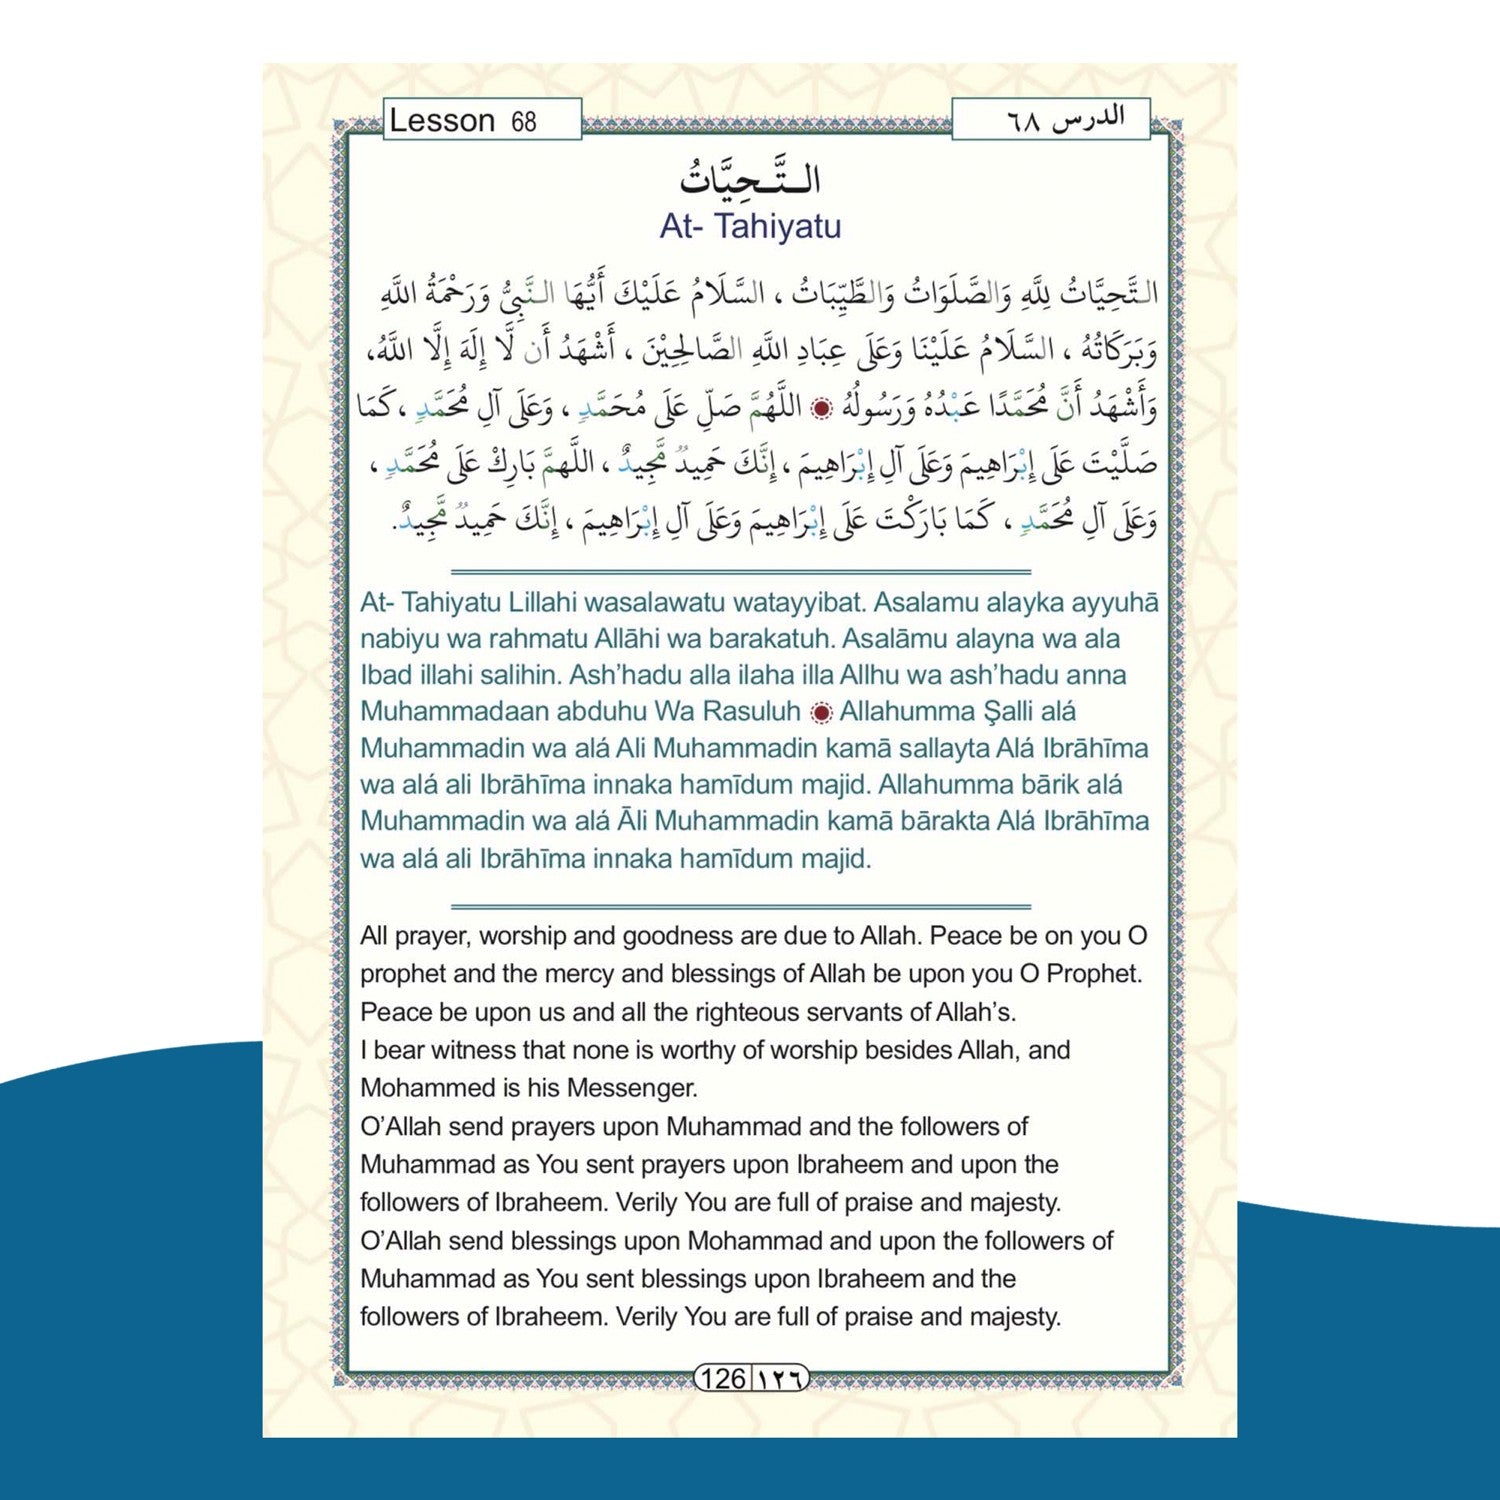 Lesson 68
الدرس ٦٨
التَّحِيَّاتُ
At- Tahiyatu
التَّحِيَّاتُ لِلَّهِ وَالصَّلَوَاتُ وَالطَّيِّبَاتُ ، السَّلَامُ عَلَيْكَ أَيُّهَا النَّبِيُّ وَرَحْمَةُ اللَّهِ
وَبَرَكَاتُهُ ، السَّلَامُ عَلَيْنَا وَعَلَى عِبَادِ اللَّهِ الصَّالِحِيْنَ ، أَشْهَدُ أَن لَّا إِلَهَ إِلَّا اللَّهُ،
وَأَشْهَدُ أَنَّ مُحَمَّدًا عَبْدُهُ وَرَسُولُهُ اللَّهُمَّ صَلِّ عَلَى مُحَمَّدٍ ، وَعَلَى آلِ مُحَمَّدٍ ،كَمَا
صَلَّيْتَ عَلَى إِبْرَاهِيمَ وَعَلَى آلِ إِبْرَاهِيمَ ، إِنَّكَ حَمِيدٌ مَّجِيدٌ ، اللَّهمَّ بَارِكْ عَلَى مُحَمَّدٍ ،
وَعَلَى آلِ مُحَمَّدٍ ، كَمَا بَارَكْتَ عَلَى إِبْرَاهِيمَ وَعَلَى آلِ إِبْرَاهِيمَ ، إِنَّكَ حَمِيدٌ مَّجِيدٌ.
At- Tahiyatu Lillahi wasalawatu watayyibat. Asalamu alayka ayyuhā
nabiyu wa rahmatu Allāhi wa barakatuh. Asalāmu alayna wa ala
Ibad illahi salihin. Ash’hadu alla ilaha illa Allhu wa ash’hadu anna
Muhammadaan abduhu Wa Rasuluh Allahumma Şalli alá
Muhammadin wa alá Ali Muhammadin kamā sallayta Alá Ibrāhīma
wa alá ali Ibrāhīma innaka hamīdum majid. Allahumma bārik alá
Muhammadin wa alá Āli Muhammadin kamā bārakta Alá Ibrāhīma
wa alá ali Ibrāhīma innaka hamīdum majid.
All prayer, worship and goodness are due to Allah. Peace be on you O
prophet and the mercy and blessings of Allah be upon you O Prophet.
Peace be upon us and all the righteous servants of Allah’s.
I bear witness that none is worthy of worship besides Allah, and
Mohammed is his Messenger.
O’Allah send prayers upon Muhammad and the followers of
Muhammad as You sent prayers upon Ibraheem and upon the
followers of Ibraheem. Verily You are full of praise and majesty.
O’Allah send blessings upon Mohammad and upon the followers of
Muhammad as You sent blessings upon Ibraheem and the
followers of Ibraheem. Verily You are full of praise and majesty.
126 ١٢٦